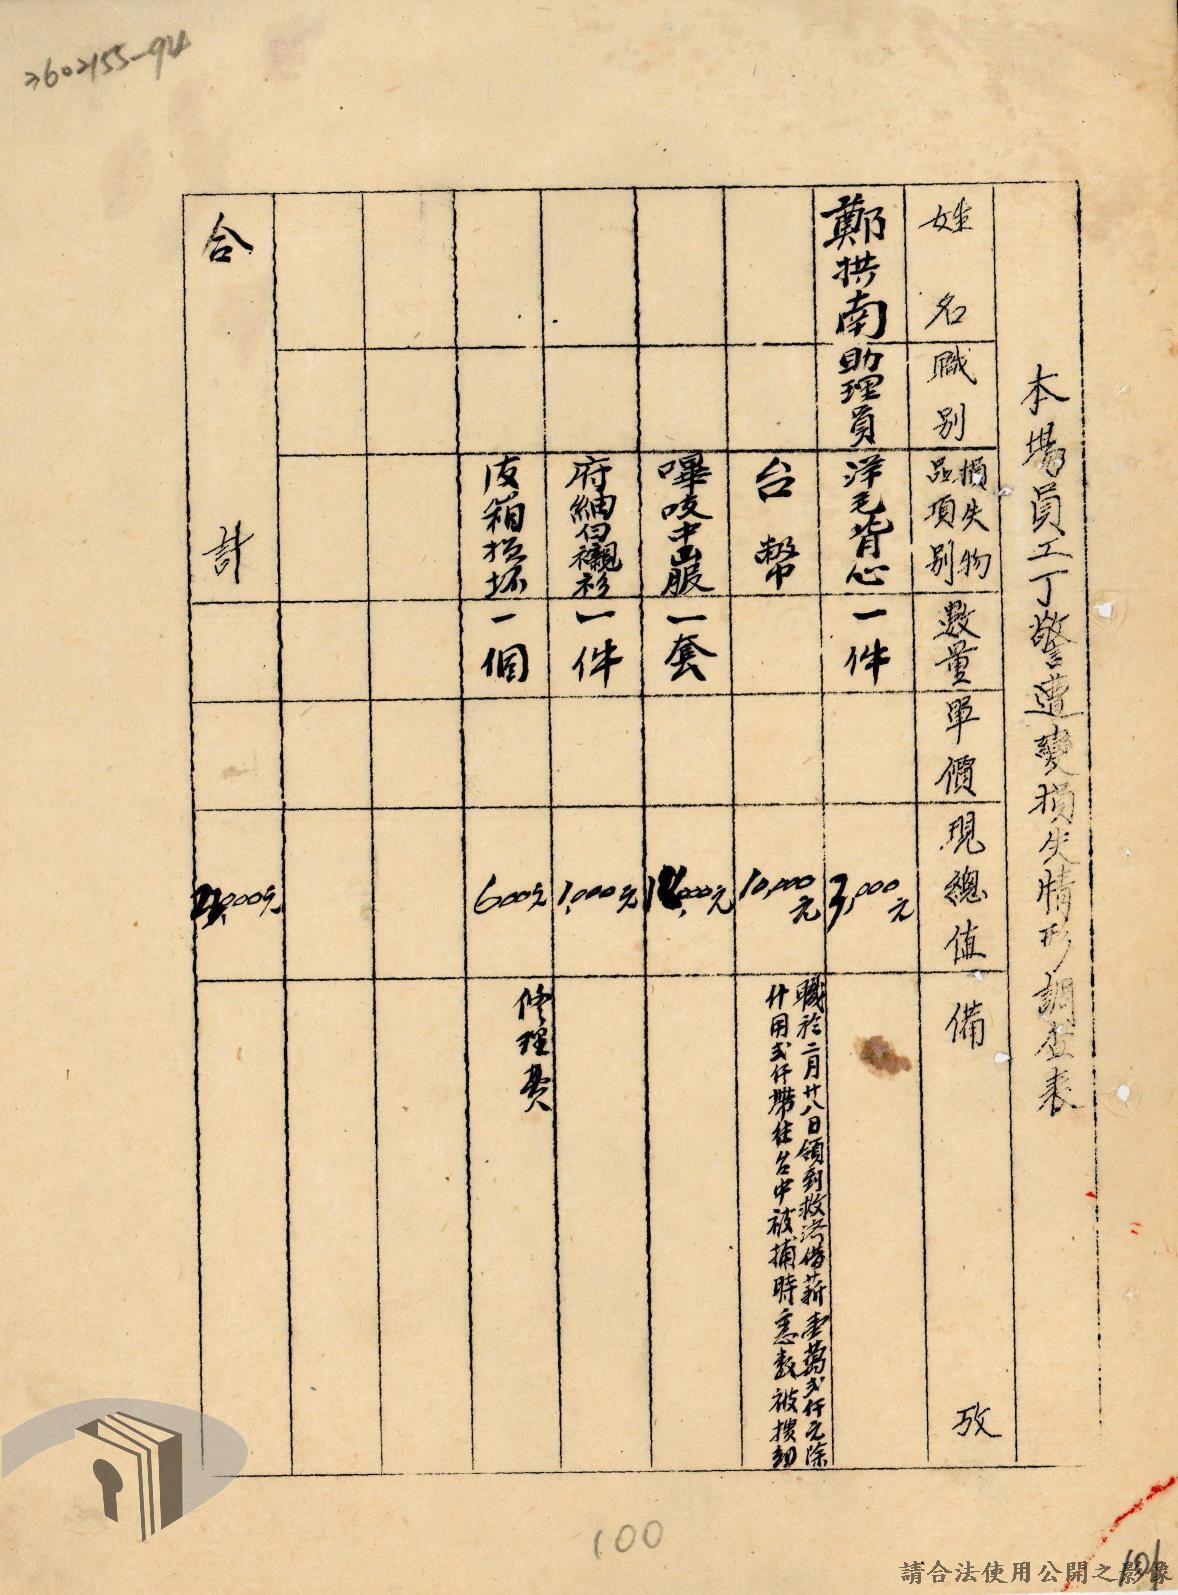 3602155-94
本場員工丁警遭變損失情形調查表
姓名
職別
損失物
品項別
數量
單價
現總值
備攷
鄭拱南
助理員
洋毛背心
一件
3,000元
台幣
10,000元
職於二月廿八日領到救濟借薪壹萬弍仟元除
什用弍仟帶往台中被捕時悉數被搜劫
嗶吱中山服
一套
府綢白襯衫
一件
1,000元
皮箱打坏
一個
600元
修理費
合計
100
101
請合法使用公開之影像